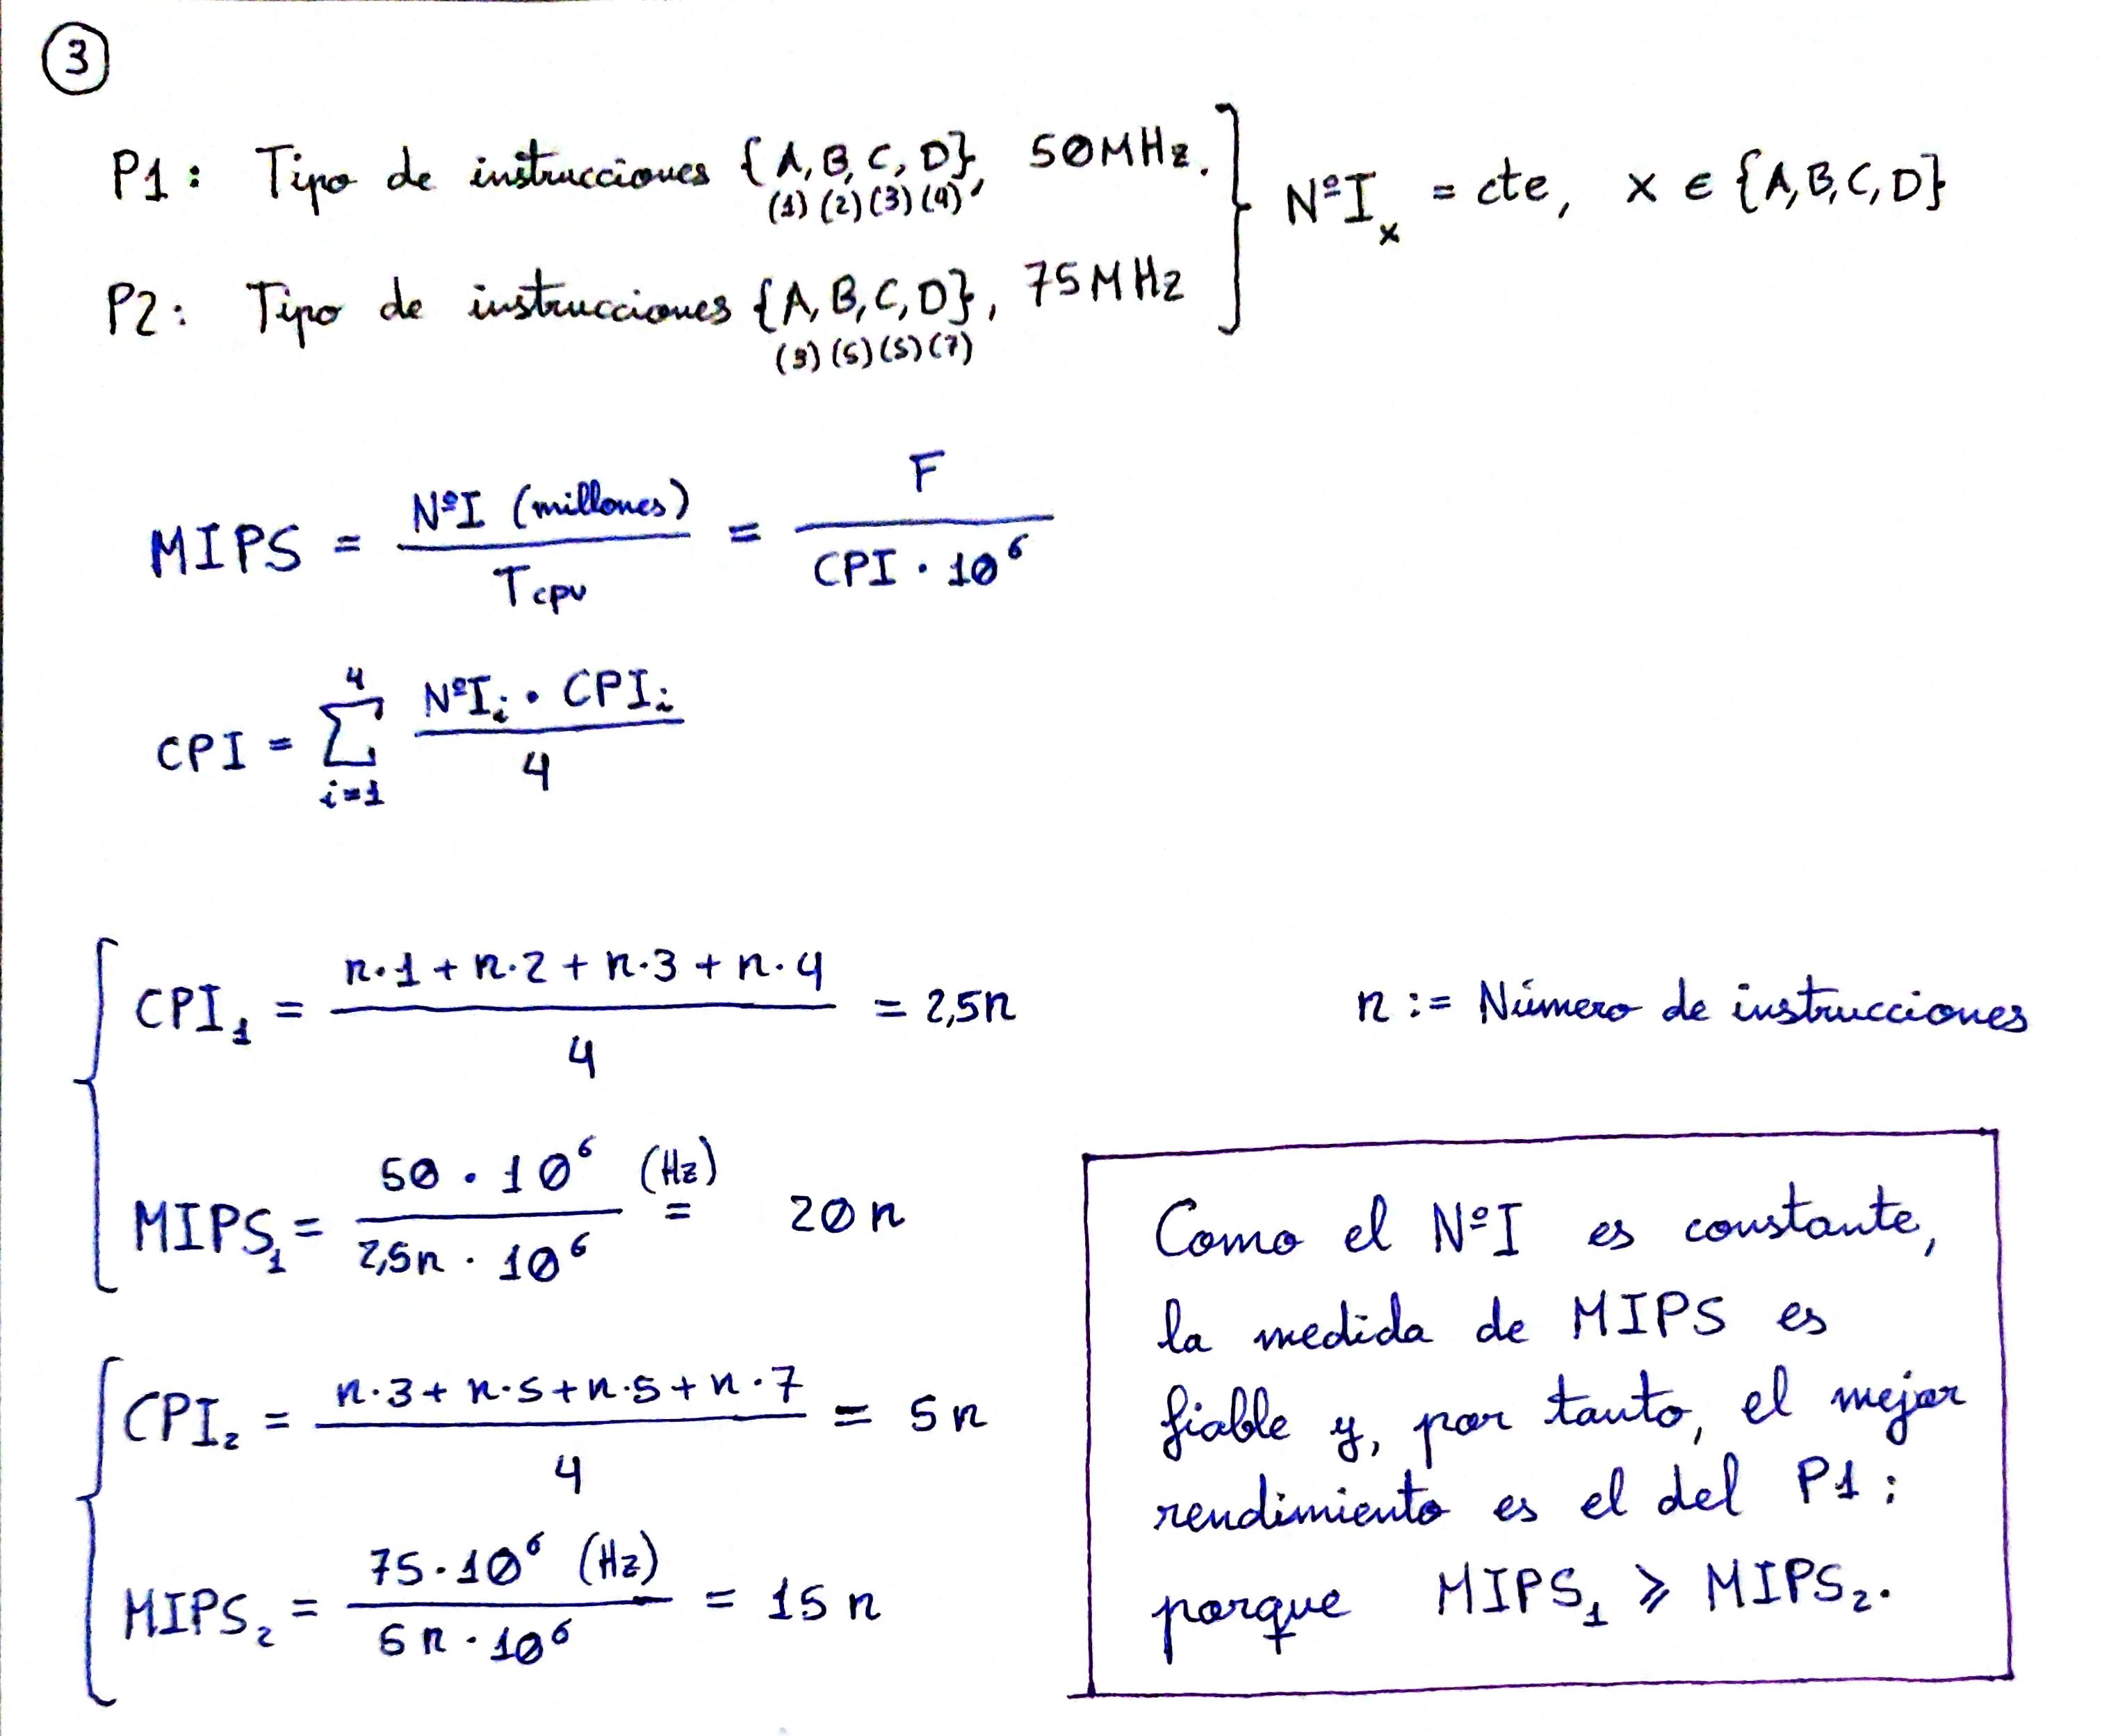 3
P1: Tipo de instrucciones {A, B, C, D}, 50MHz.
(1) (2) (3) (4)
NºI_x = cte, x ∈ {A, B, C, D}
P2: Tipo de instrucciones {A, B, C, D}, 75MHz
(3) (5) (5) (7)
MIPS = NºI (millones) / Tcpu = F / CPI · 10^6
CPI = Σ_{i=1}^{4} NºI_i · CPI_i / 4
CPI_1 = n·1 + n·2 + n·3 + n·4 / 4 = 2,5n
n := Número de instrucciones
MIPS_1 = 50 · 10^6 (Hz) / 2,5n · 10^6 = 20n
CPI_2 = n·3 + n·5 + n·5 + n·7 / 4 = 5n
MIPS_2 = 75·10^6 (Hz) / 5n · 10^6 = 15n
Como el NºI es constante,
la medida de MIPS es
fiable y, por tanto, el mejor
rendimiento es el del P1;
porque MIPS_1 ⩾ MIPS_2.